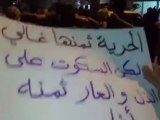 الحرية ثمنها غالي
لكن السكوت على
الذل والعار ثمنه